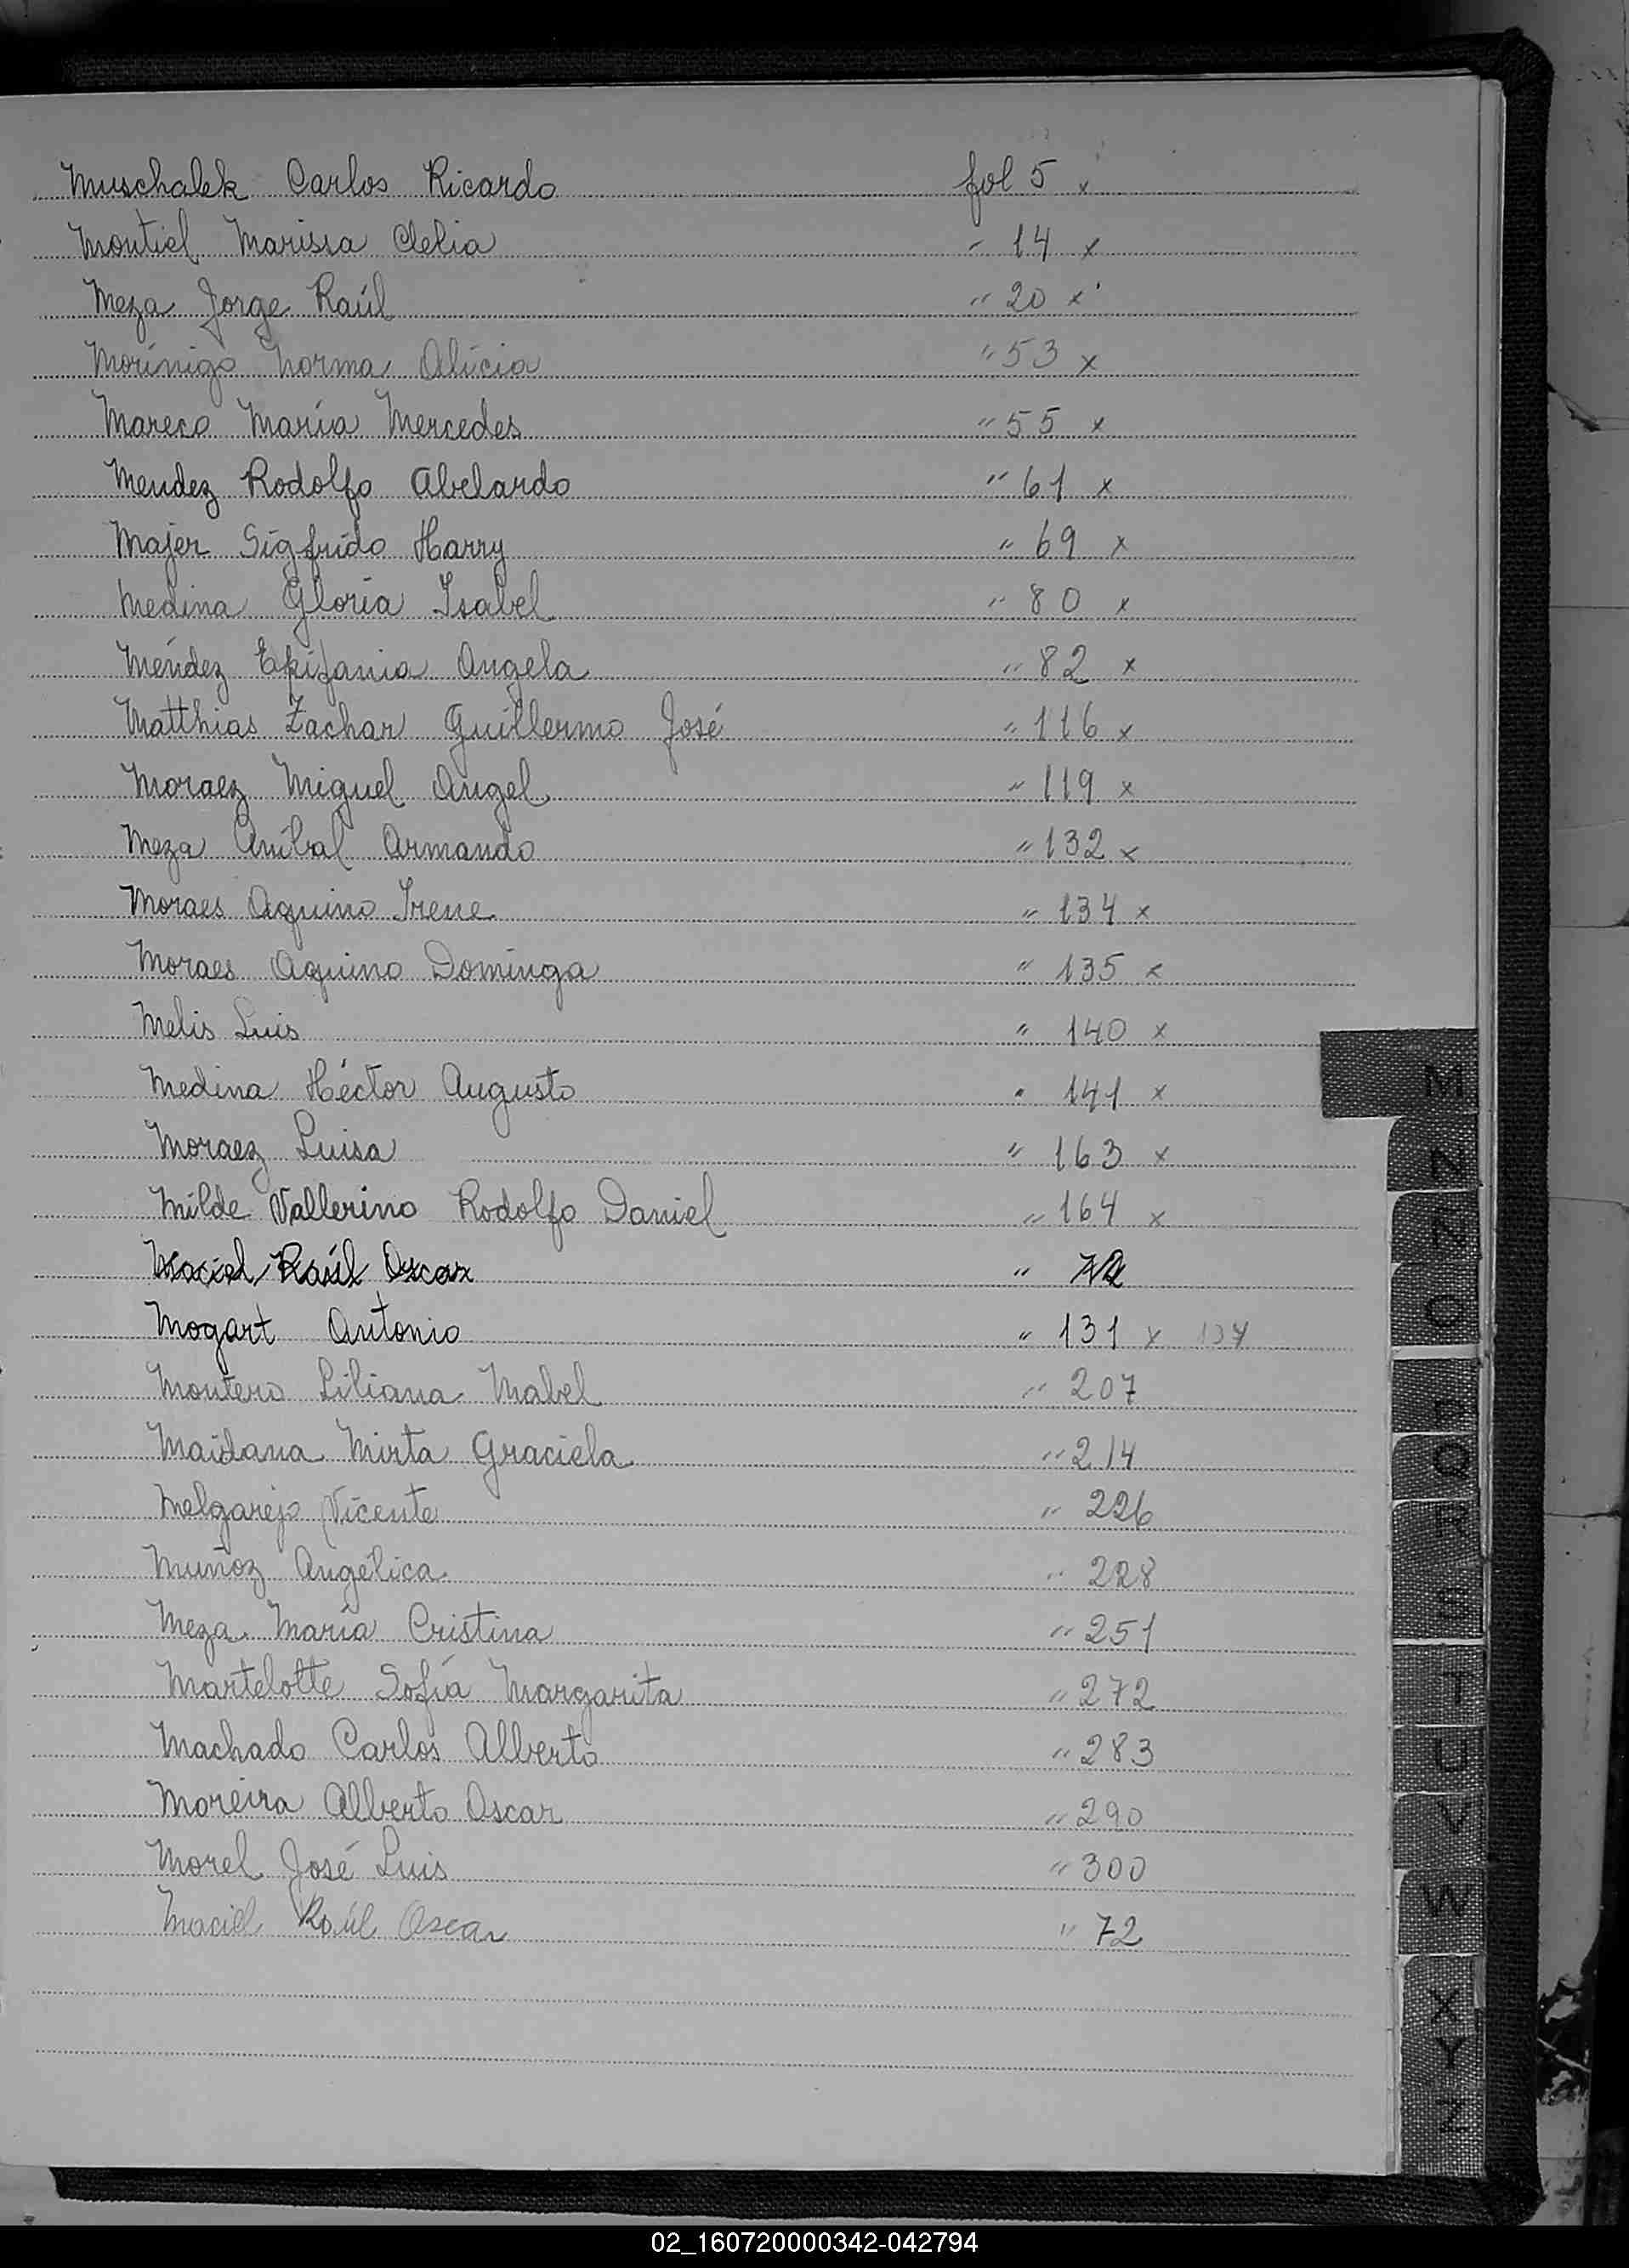 Muschalek Carlos Ricardo fol 5 x
Montiel Marissa Clelia " 14 x
Meza Jorge Raúl " 20 x
Morínigo Norma Alicia " 53 x
Mareco María Mercedes " 55 x
Mendez Rodolfo Abelardo " 61 x
Majer Sigfrido Harry " 69 x
Medina Gloria Isabel " 80 x
Méndez Epifania Angela " 82 x
Matthias Zachar Guillermo José " 116 x
Moraez Miguel Angel " 119 x
Meza Aníbal Armando " 132 x
Moraes Aquino Irene " 134 x
Moraes Aquino Dominga " 135 x
Melis Luis " 140 x
Medina Héctor Augusto " 141 x
Moraez Luisa " 163 x
Milde Vallerino Rodolfo Daniel " 164 x
Maciel Raúl Oscar " 72
Mogart Antonio " 131 x 137
Montero Liliana Mabel " 207
Maidana Mirta Graciela " 214
Melgarejo Vicente " 226
Muñoz Angélica " 228
Meza María Cristina " 251
Martelotte Sofía Margarita " 272
Machado Carlos Alberto " 283
Moreira Alberto Oscar " 290
Morel José Luis " 300
Maciel Raúl Oscar " 72
M
N
Ñ
O
P
Q
R
S
T
U
V
W
X
Y
Z
02_160720000342-042794